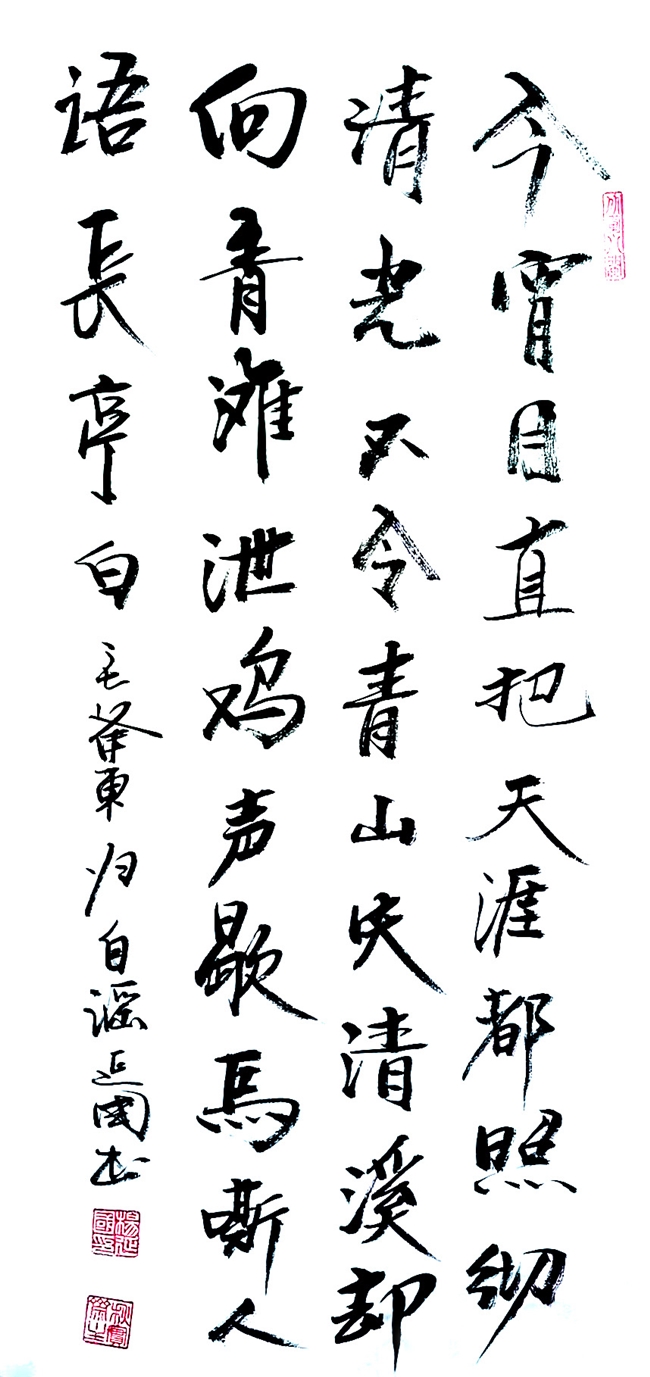 今宵月直把天涯都照彻
清光不令青山失清溪却
向青滩泄鸡声歇马嘶人
语長亭白
归自谣延國书
楊延國印